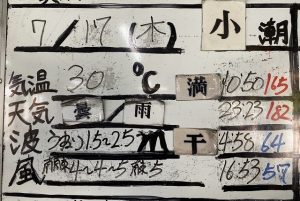 7/17(木) 小潮
気温 30℃ 満 10:50 165
天気 曇/雨 23:23 182
波 うねり1.5~2.5m 干 4:58 64
風 南東4~4~5 5 16:53 57